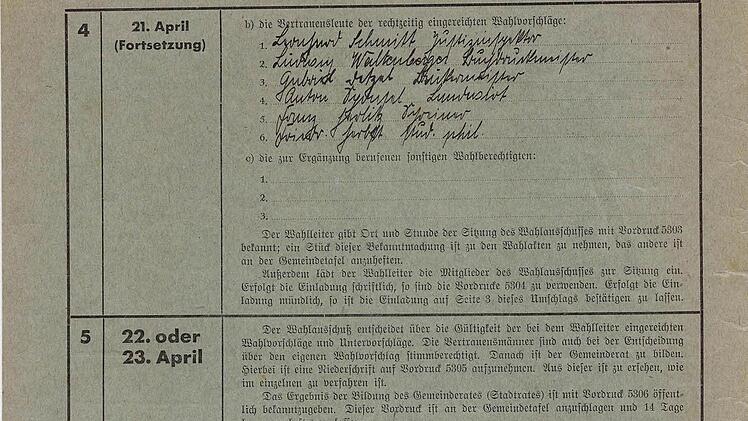 4
21. April
(Fortsetzung)
b) die Vertrauensleute der rechtzeitig eingereichten Wahlvorschläge:
1. Leonhard Schmitt Justizinspektor
2. Ludwig Walkenberger Buchdruckmeister
3.
4. Anton
5. Franz Schreiner
6. Friedr. Herbst stud. phil.
c) die zur Ergänzung berufenen sonstigen Wahlberechtigten:
1.
2.
3.
Der Wahlleiter gibt Ort und Stunde der Sitzung des Wahlausschusses mit Vordruck 5303
bekannt; ein Stück dieser Bekanntmachung ist zu den Wahlakten zu nehmen, das andere ist
an der Gemeindetafel anzuheften.
Außerdem lädt der Wahlleiter die Mitglieder des Wahlausschusses zur Sitzung ein.
Erfolgt die Einladung schriftlich, so sind die Vordrucke 5304 zu verwenden. Erfolgt die Ein-
ladung mündlich, so ist die Einladung auf Seite 3 dieses Umschlags bestätigen zu lassen.
5
22. oder
23. April
Der Wahlausschuß entscheidet über die Gültigkeit der bei dem Wahlleiter eingereichten
Wahlvorschläge und Untervorschläge. Die Vertrauensmänner sind auch bei der Entscheidung
über den eigenen Wahlvorschlag stimmberechtigt. Danach ist der Gemeinderat zu bilden.
Hierbei ist eine Niederschrift auf Vordruck 5305 aufzunehmen. Aus dieser ist zu ersehen, wie
im einzelnen zu verfahren ist.
Das Ergebnis der Bildung des Gemeinderates (Stadtrates) ist mit Vordruck 5306 öffent-
lich bekanntzugeben. Dieser Vordruck ist an der Gemeindetafel anzuschlagen und 14 Tage